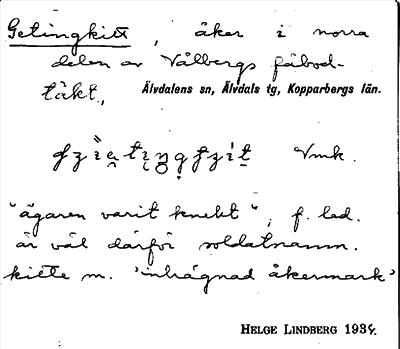 Getingkitt, åker i norra
delen av Vålbergs fäbod-
täkt., Älvdalens sn, Älvdals tg, Kopparbergs län.
Vmk.
"ägaren varit knekt", f. led.
är väl därför soldatnamn.
kitte m. 'inhägnad åkermark'
HELGE LINDBERG 1934.